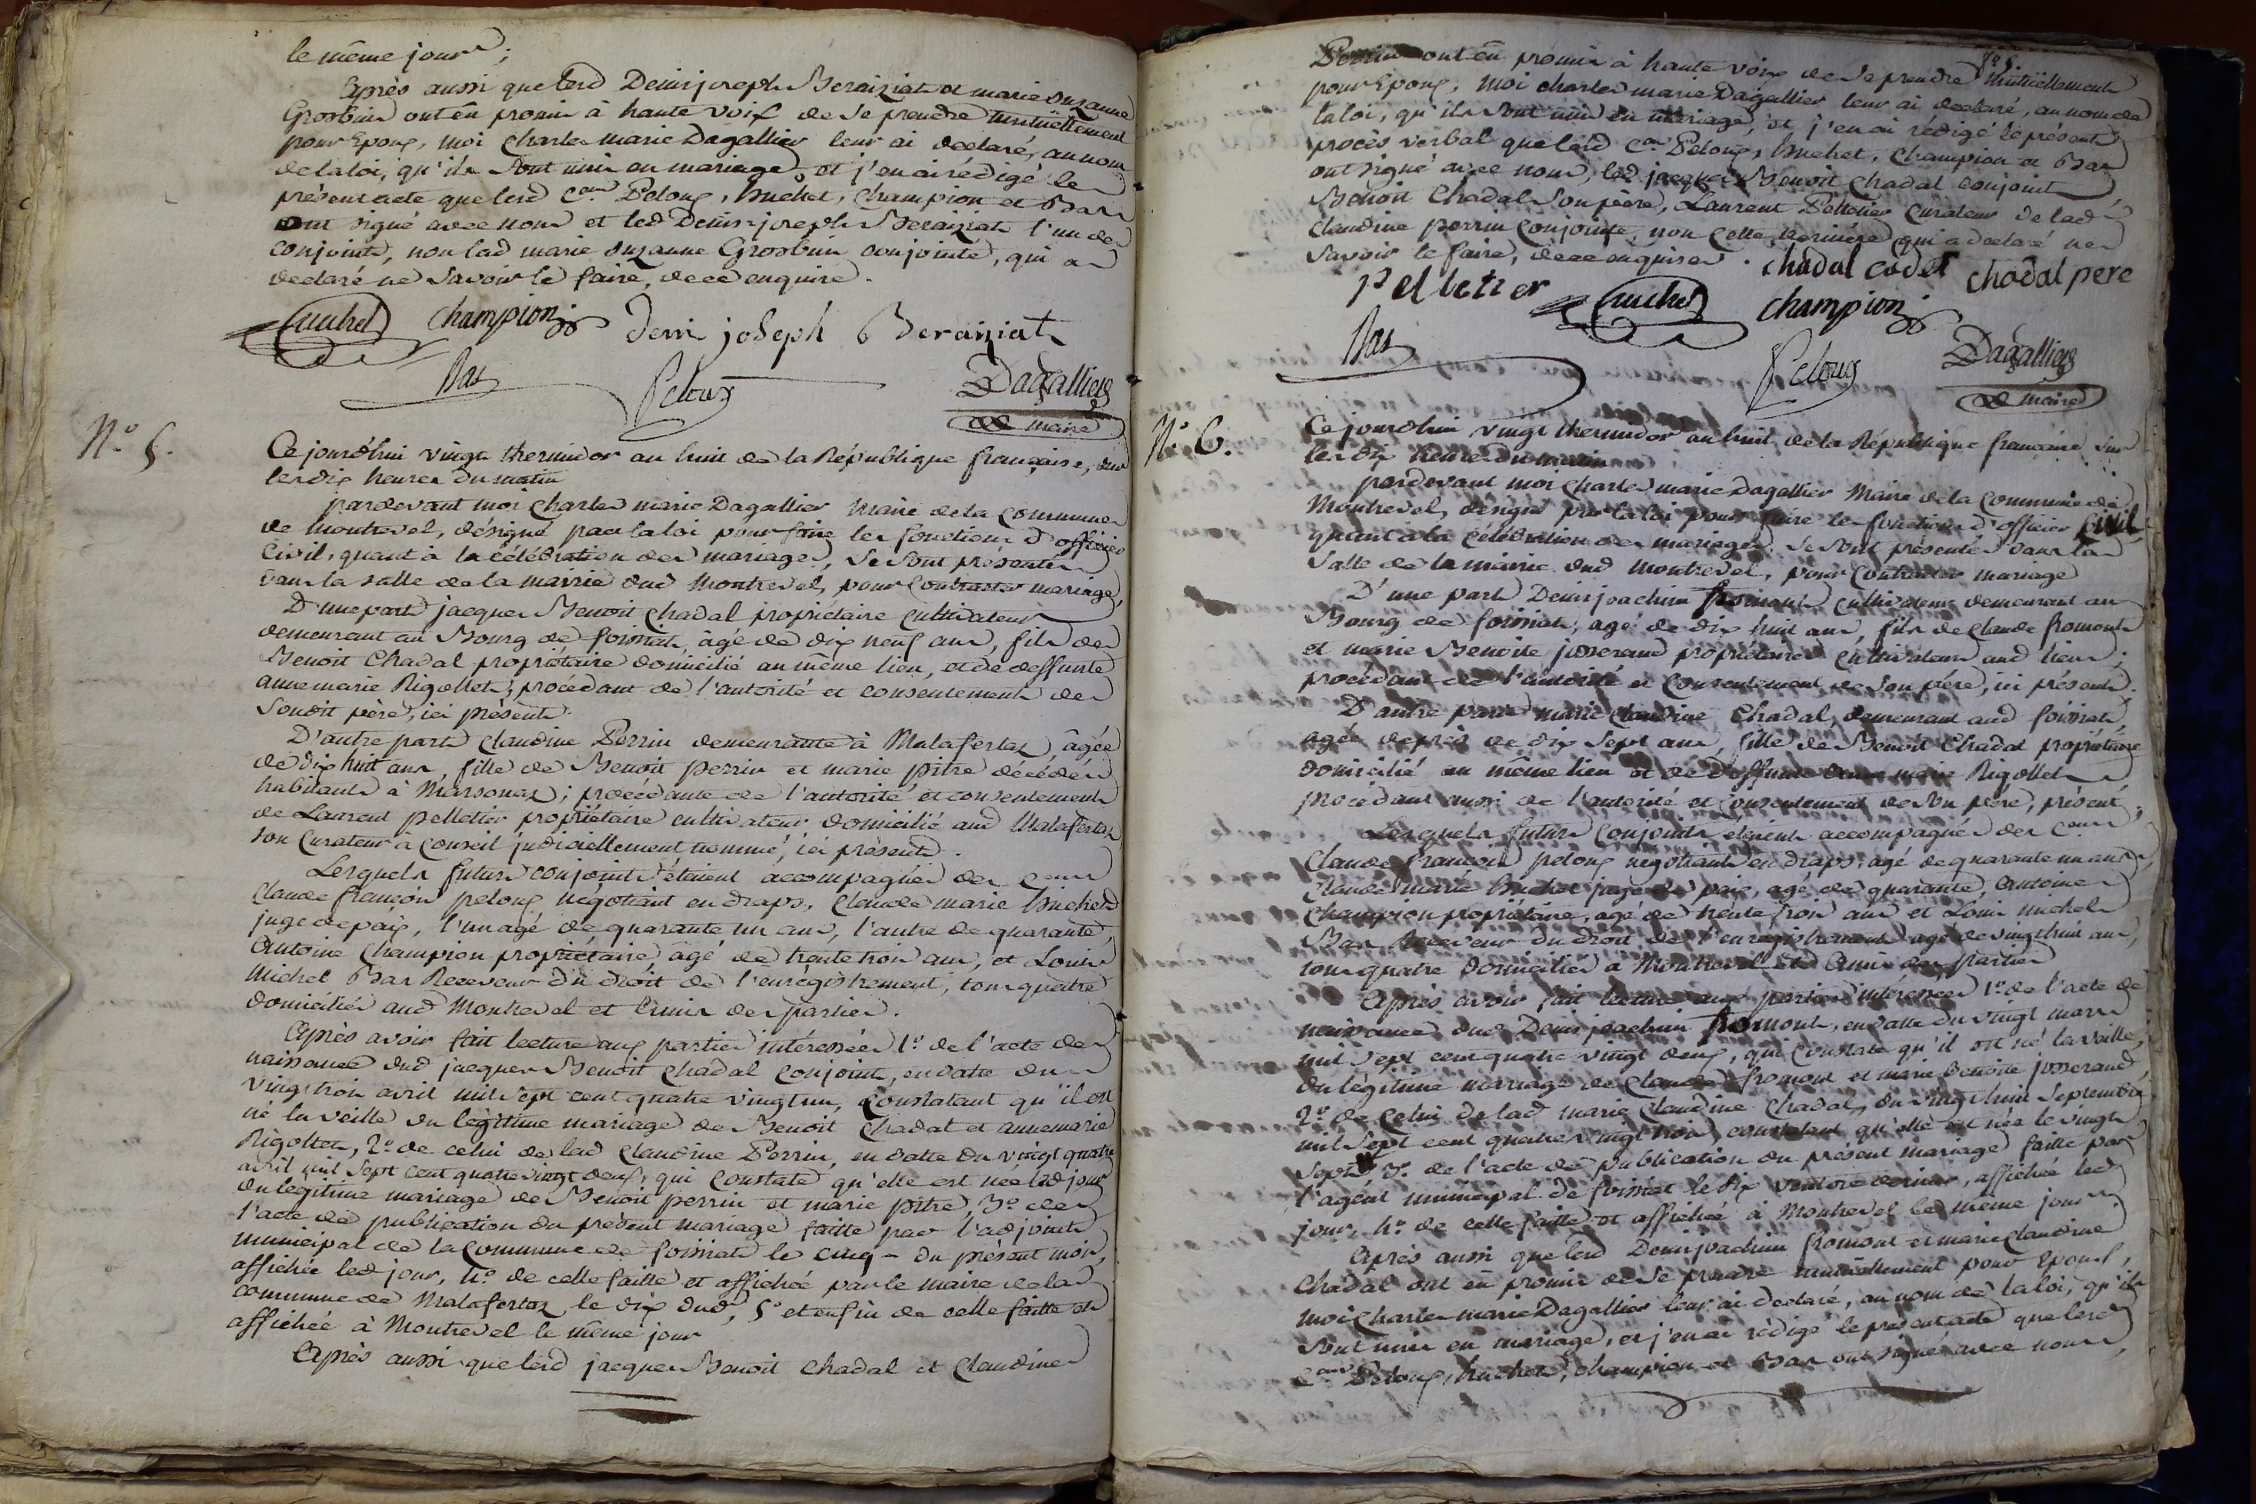 le même jour ;
Après aussi que lesd Denis joseph Beraiziat et marie suzanne
Grosbuin ont eû promis à haute voix de se prendre mutuellement
pour Epoux, moi charles marie Dagallier leur ai declaré, au nom
de la loi, qu'ils sont unis en mariage, et j'en ai rédigé le
présent acte que lesd c.ens Peloux, buchet, champion et Bar
ont signé avec nous et led Denis joseph Beraiziat l'un des
conjoints, non lad marie suzanne Grosbuin conjointe, qui a
declaré ne savoir le faire, de ce enquise.
buchet champion Deni joseph Beraiziat
Bar Peloux Dagallier
maire
N.o 5.
Ce jourd'hui vingt thermidor an huit de la République française, sur
les dix heures du matin
pardevant moi charles marie Dagallier maire de la commune
de montrevel, désigné par la loi pour faire les fonctions d'officier
civil, quant à la célébration des mariages, se sont présentés
dans la salle de la mairie dud montrevel, pour contracter mariage,
D'une part jacques Benoit chadal propriétaire cultivateur
demeurant au Bourg de foissiat, âgé de dix neuf ans, fils de
Benoit Chadal propriétaire domicilié au même lieu, et de deffunte
anne marie Rigollet ; procédant de l'autorité et consentement de
sondit père, ici présent.
D'autre part claudine Perrin demeurante à Malafertaz, âgée
de dix huit ans, fille de Benoit perrin et marie pitre décédés
habitants à Marsonnaz ; procédante de l'autorité et consentement
de Laurent pelletier propriétaire cultivateur domicilié aud Malafertaz,
son curateur à conseil judiciellement nommé, ici présent.
Lesquels futurs conjoints étaient accompagnés des c.ens
claude françois peloux négotiant en draps, claude marie buchet
juge de paix, l'un agé de quarante un ans, l'autre de quarante,
Antoine champion propriétaire, âgé de trente trois ans, et Louis
Michel Bar Receveur du droit de l'enrégistrement, tous quatre
domiciliés aud Montrevel et amis des parties.
Après avoir fait lecture aux parties intéressées 1.o de l'acte de
naissance dud jacques Benoit chadal conjoint, en datte du
vingt trois avril mil sept cent quatre vingt un, constatant qu'il est
né la veille du légitime mariage de Benoit Chadal et anne marie
Rigollet, 2.o de celui de lad claudine Perrin, en datte du vingt quatre
avril mil sept cent quatre vingt deux, qui constate qu'elle est née led jour
du légitime mariage de Benoit perrin et marie pitre, 3.o de
l'acte de publication du présent mariage faitte par l'adjoint
municipal de la commune de foissiat le cinq du présent mois,
affichée led jour, 4.o de celle faitte et affichée par le maire de la
commune de Malafertaz le dix dud, 5.o et enfin de celle faitte et
affichée à Montrevel le même jour
Après aussi que lesd jacques Benoit chadal et claudine
Perrin ont eû promis à haute voix de se prendre mutuellement
pour Epoux, moi charles marie Dagallier leur ai declaré, au nom de
la loi, qu'ils sont unis en mariage, et j'en ai rédigé le présent
procès verbal que lesd c.ens Peloux, buchet, champion et Bar
ont signé avec nous, led jacques Benoit chadal conjoint
Benoit Chadal son père, Laurent Pelletier curateur de lad
claudine perrin conjointe, non cette dernière qui a declaré ne
savoir le faire, de ce enquise. chadal cadet chadal pere
Pelletier buchet champion
Bar Peloux Dagallier
maire
N.o 6.
Ce jourd'hui vingt thermidor an huit de la République française sur
les dix heures du matin
pardevant moi charles marie Dagallier Maire de la commune de
Montrevel, désigné par la loi pour faire les fonctions d'officier civil
quant à la célébration des mariages, se sont présentés dans la
salle de la mairie dud Montrevel, pour contracter mariage
D'une part Denis joachim fromont cultivateur demeurant au
Bourg de foissiat, agé de dix huit ans, fils de claude fromont
et marie Benoite josserand propriétaires cultivateurs aud lieu ;
procédant de l'autorité et consentement de son père, ici présent.
D'autre part marie claudine Chadal, demeurant aud foissiat,
agée de près de dix sept ans, fille de Benoit Chadal propriétaire
domicilié au même lieu et de deffunte anne marie Rigollet
procédant aussi de l'autorité et consentement de son père, présent.
Lesquels futurs conjoints étaient accompagnés des c.ens
Claude françois peloux negotiant en draps, agé de quarante un ans,
Claude marie Buchet juge de paix, agé de quarante, Antoine
Champion propriétaire, agé de trente trois ans et Louis michel
Bar Receveur du droit de l'enregistrement agé de vingt huit ans,
tous quatre domiciliés à Montrevel et amis des parties
Après avoir fait lecture aux parties intéressées 1.o de l'acte de
naissance dud Denis joachim fromont, en datte du vingt mars
mil sept cent quatre vingt deux, qui constate qu'il est né la veille,
du légitime mariage de Claude fromont et marie benoite josserand
2.o de celui de lad marie claudine chadal, du vingt huit septembre
mil sept cent quatre vingt trois, constatant qu'elle est née le vingt
sept, 3.o de l'acte de publication du présent mariage faitte par
l'agent municipal de foissiat le dix ventose dernier, affichée led
jour, 4.o de celle faitte et affichée à Montrevel le même jour
Après aussi que lesd Denis joachim fromont et marie claudine
Chadal ont eû promis de se prendre mutuellement pour Epoux,
moi Charles marie Dagallier leur ai declaré, au nom de la loi, qu'ils
sont unis en mariage, et j'en ai rédigé le présent acte que lesd
c.ens Peloux, buchet, champion et Bar ont signé avec nous,